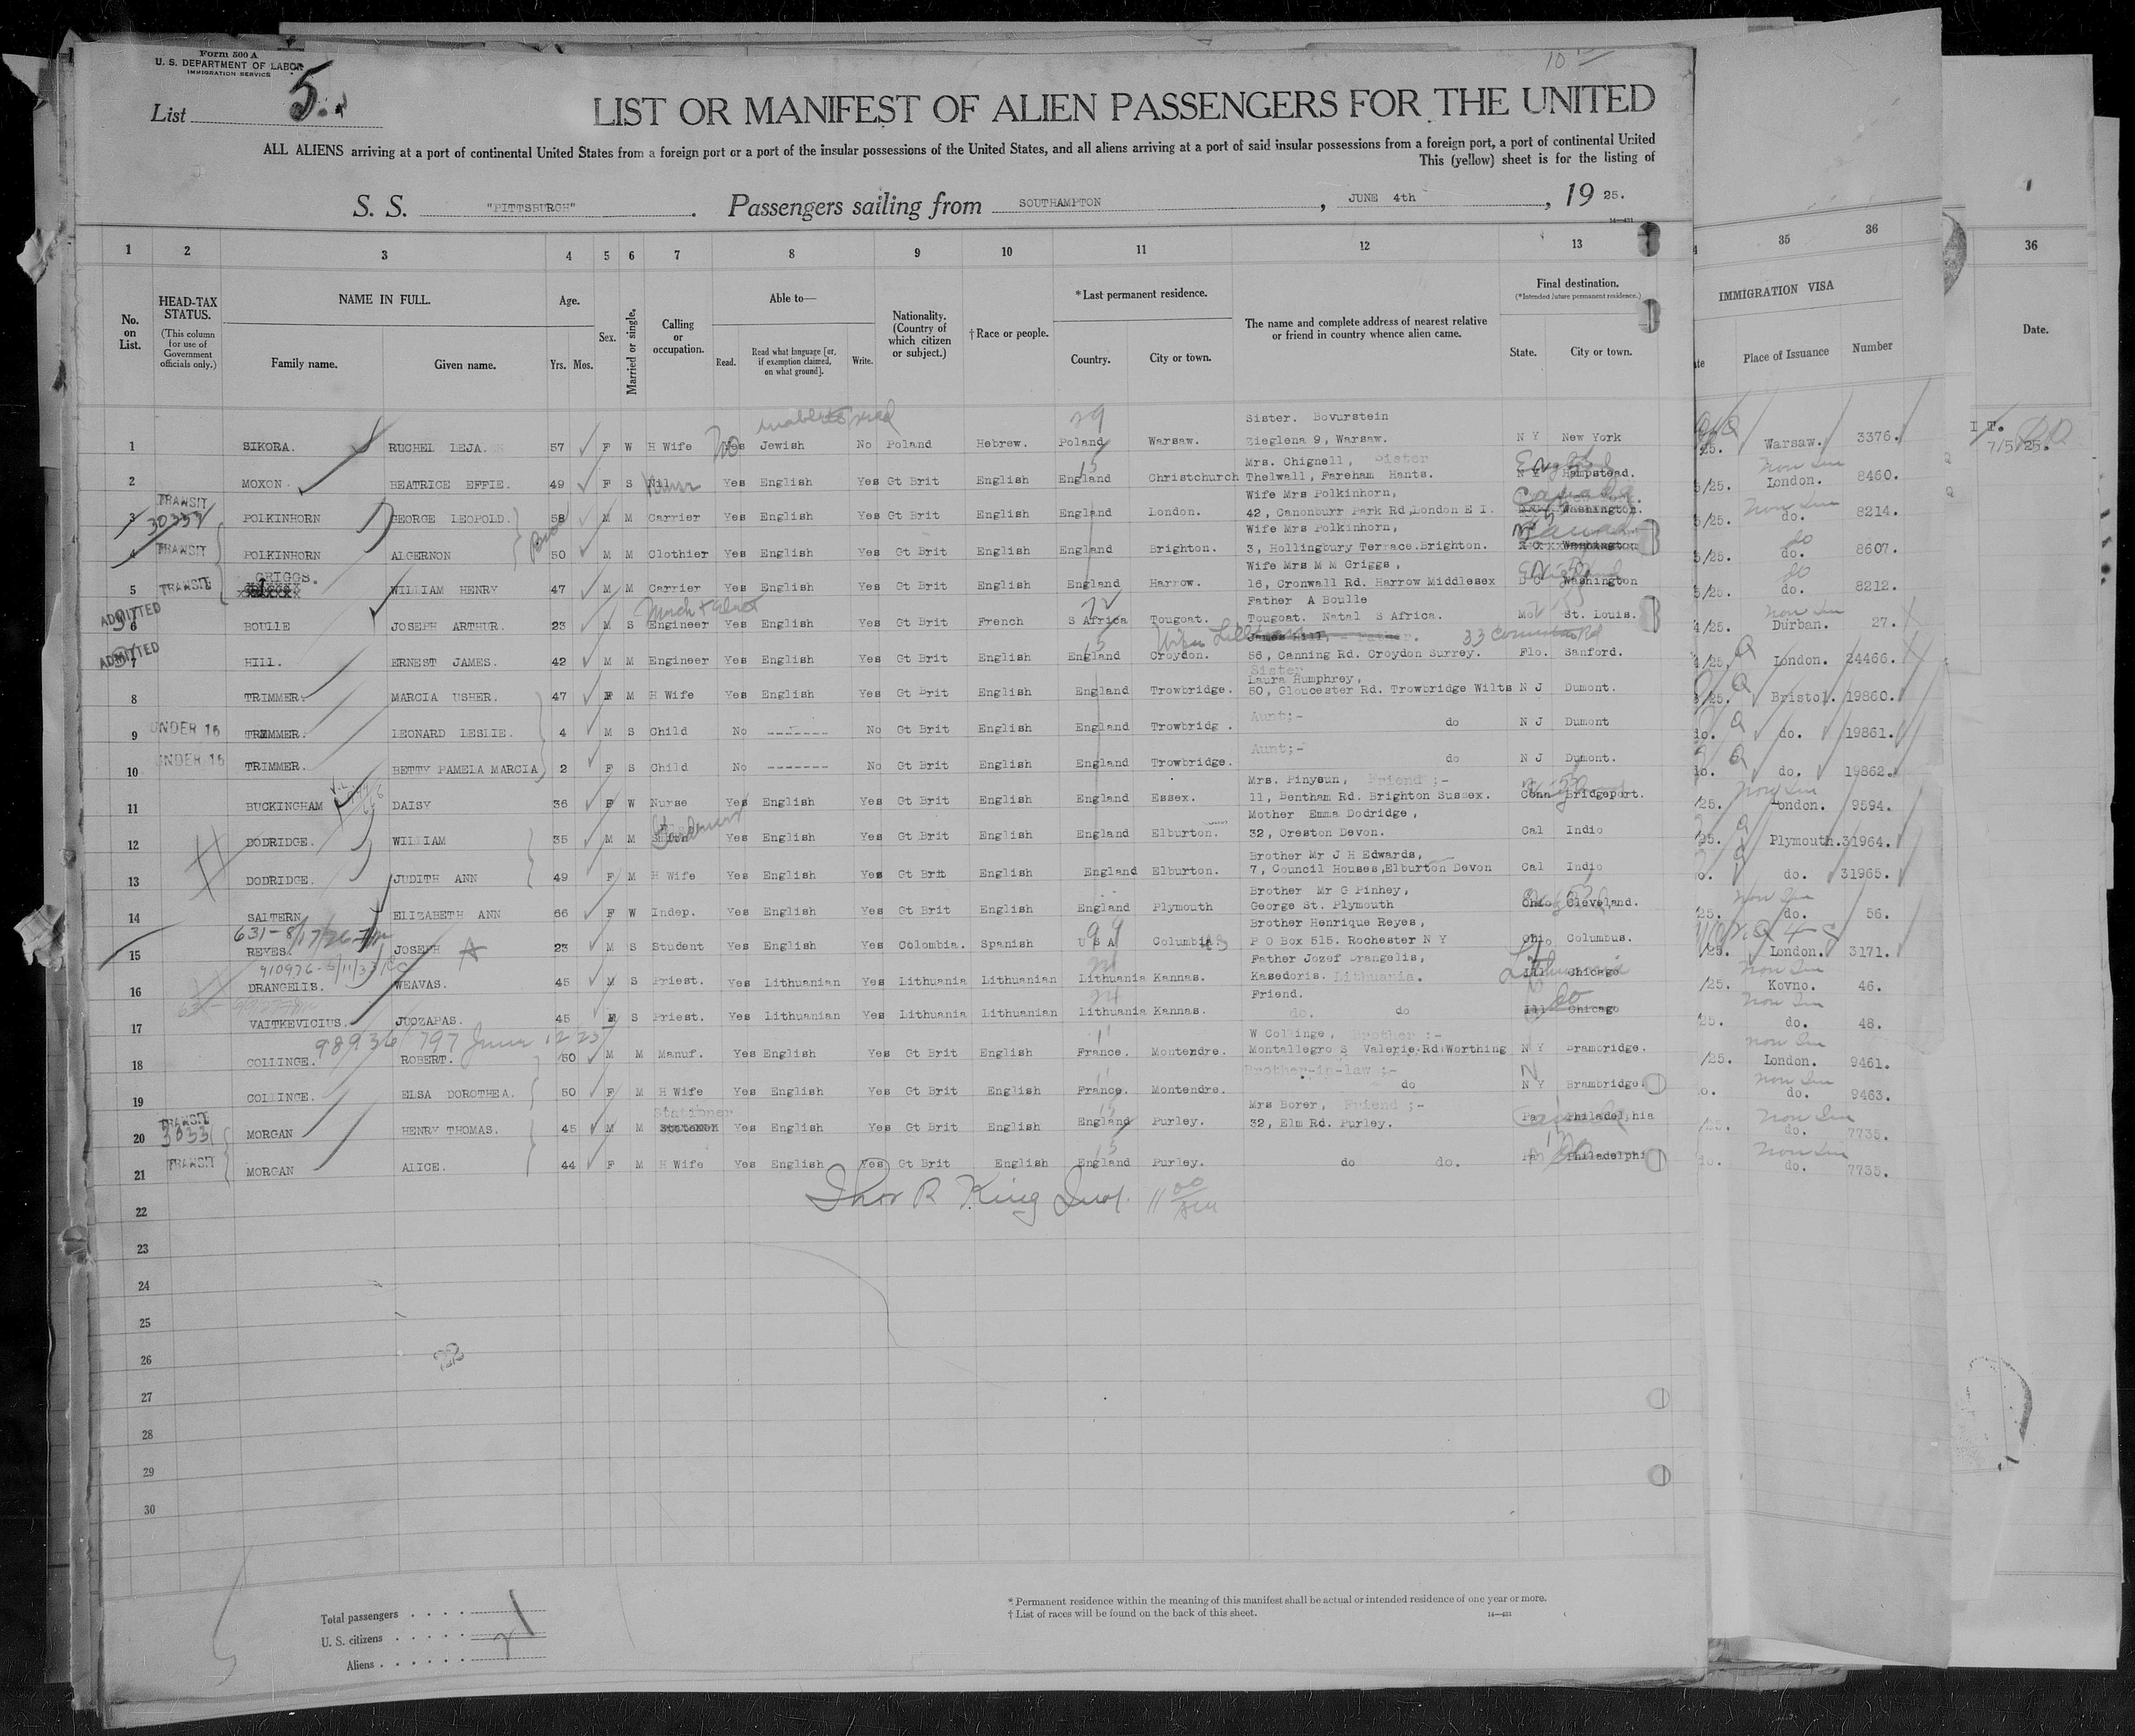 Form 500 A
U. S. DEPARTMENT OF LABOR
IMMIGRATION SERVICE
List 5.
10
LIST OR MANIFEST OF ALIEN PASSENGERS FOR THE UNITED
ALL ALIENS arriving at a port of continental United States from a foreign port or a port of the insular possessions of the United States, and all aliens arriving at a port of said insular possessions from a foreign port, a port of continental United
This (yellow) sheet is for the listing of
S. S. "PITTSBURGH" . Passengers sailing from SOUTHAMPTON , JUNE 4th , 19 25.
14—431
1 2 3 4 5 6 7 8 9 10 11 12 13 35 36 36
No. on List.
HEAD-TAX STATUS.
(This column for use of Government officials only.)
NAME IN FULL.
Family name. Given name.
Age.
Yrs. Mos.
Sex.
Married or single.
Calling or occupation.
Able to—
Read. Read what language [or, if exemption claimed, on what ground]. Write.
Nationality. (Country of which citizen or subject.)
† Race or people.
* Last permanent residence.
Country. City or town.
The name and complete address of nearest relative or friend in country whence alien came.
Final destination.
(* Intended future permanent residence.)
State. City or town.
IMMIGRATION VISA
Place of Issuance Number
Date.
unable to read 29 Sister. Bovurstein
1 SIKORA. RUCHEL LEJA. 57 F W H Wife No Yes Jewish No Poland Hebrew. Poland Warsaw. Zieglena 9, Warsaw. N Y New York 25. Warsaw. 3376. 7/5/25.
Mrs. Chignell, Sister
2 MOXON. BEATRICE EFFIE. 49 F S Nil Yes English Yes Gt Brit English England Christchurch Thelwall, Fareham Hants. N Y Hampstead. 5/25. London. 8460.
TRANSIT Wife Mrs Polkinhorn,
3 30333 POLKINHORN GEORGE LEOPOLD. 58 M M Carrier Yes English Yes Gt Brit English England London. 42, Canonburr Park Rd, London E I. Canada Washington. 5/25. do. 8214.
Wife Mrs Polkinhorn,
4 TRANSIT POLKINHORN ALGERNON 50 M M Clothier Yes English Yes Gt Brit English England Brighton. 3, Hollingbury Terrace. Brighton. Washington 5/25. do. 8607.
GRIGGS. Wife Mrs M M Griggs,
5 TRANSIT WILLIAM HENRY 47 M M Carrier Yes English Yes Gt Brit English England Harrow. 16, Cronwall Rd. Harrow Middlesex D C Washington 5/25. do. 8212.
ADMITTED Father A Boulle
6 BOULLE JOSEPH ARTHUR. 23 M S Engineer Yes English Yes Gt Brit French S Africa Tougoat. Tougoat. Natal S Africa. Mo St. Louis. 4/25. Durban. 27.
ADMITTED James Hill, - Father. 33
7 HILL. ERNEST JAMES. 42 M M Engineer Yes English Yes Gt Brit English England Croydon. 56, Canning Rd. Croydon Surrey. Flo. Sanford. 4/25. London. 24466.
Sister
Laura Humphrey,
8 TRIMMER. MARCIA USHER. 47 F M H Wife Yes English Yes Gt Brit English England Trowbridge. 50, Gloucester Rd. Trowbridge Wilts N J Dumont. /25. Bristol. 19860.
9 UNDER 16 TRIMMER. LEONARD LESLIE. 4 M S Child No ------- No Gt Brit English England Trowbridg . Aunt;- do N J Dumont do. do. 19861.
10 UNDER 16 TRIMMER. BETTY PAMELA MARCIA 2 F S Child No ------- No Gt Brit English England Trowbridge. Aunt;- do N J Dumont. do. do. 19862.
Mrs. Pinyeun, Friend ;-
11 BUCKINGHAM DAISY 36 F W Nurse Yes English Yes Gt Brit English England Essex. 11, Bentham Rd. Brighton Sussex. Conn Bridgeport. /25. London. 9594.
Mother Emma Dodridge,
12 DODRIDGE. WILLIAM 35 M M Yes English Yes Gt Brit English England Elburton. 32, Oreston Devon. Cal Indio 25. Plymouth. 31964.
Brother Mr J H Edwards,
13 DODRIDGE. JUDITH ANN 49 F M H Wife Yes English Yes Gt Brit English England Elburton. 7, Council Houses, Elburton Devon Cal Indio do. 31965.
Brother Mr G Pinhey,
14 SALTERN ELIZABETH ANN 66 F W Indep. Yes English Yes Gt Brit English England Plymouth George St. Plymouth Ohio Cleveland. 25. do. 56.
631- 8/17/26 99 Brother Henrique Reyes,
15 REYES. JOSEPH A 23 M S Student Yes English Yes Colombia. Spanish U S A Columbus P O Box 515. Rochester N Y Ohio Columbus. /25. London. 3171.
Father Jozef Drangelis,
16 DRANGELIS. WEAVAS. 45 M S Priest. Yes Lithuanian Yes Lithuania Lithuanian Lithuania Kannas. Kasedoris. Lithuania. Ill Chicago /25. Kovno. 46.
Friend.
17 VAITKEVICIUS. JUOZAPAS. 45 M S Priest. Yes Lithuanian Yes Lithuania Lithuanian Lithuania Kannas. do. do Ill Chicago 25. do. 48.
98936/797 June 12 25 W Collinge, Brother ;-
18 COLLINGE. ROBERT. 50 M M Manuf. Yes English Yes Gt Brit English France. Montendre. Montallegro S Valerie. Rd Worthing N Y Brambridge. /25. London. 9461.
Brother-in-law ;-
19 COLLINGE. ELSA DOROTHEA. 50 F M H Wife Yes English Yes Gt Brit English France. Montendre. do N Y Brambridge. do. 9463.
TRANSIT Stationer Mrs Borer, Friend ;-
20 MORGAN HENRY THOMAS. 45 M M Yes English Yes Gt Brit English England Purley. 32, Elm Rd. Purley. Pa Philadel,hia /25. do. 7735.
21 TRANSIT MORGAN ALICE. 44 F M H Wife Yes English Yes Gt Brit English England Purley. do do. Pa Philadelphi do. do. 7735.
22 Thos R King 11 00 AM
23
24
25
26
27
28
29
30
Total passengers . . . .
U. S. citizens . . . . .
Aliens . . . . . .
21
* Permanent residence within the meaning of this manifest shall be actual or intended residence of one year or more.
† List of races will be found on the back of this sheet.
14—431